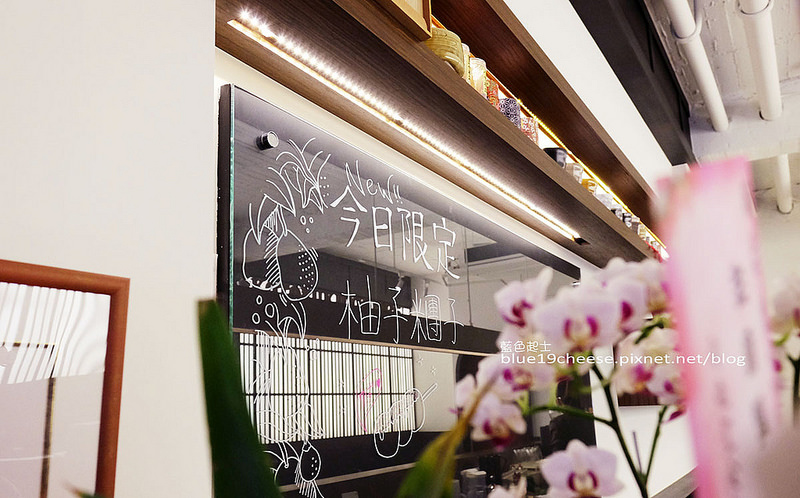 New!!
今日限定
柚子糰子
藍色起士
blue19cheese.pixnet.net/blog